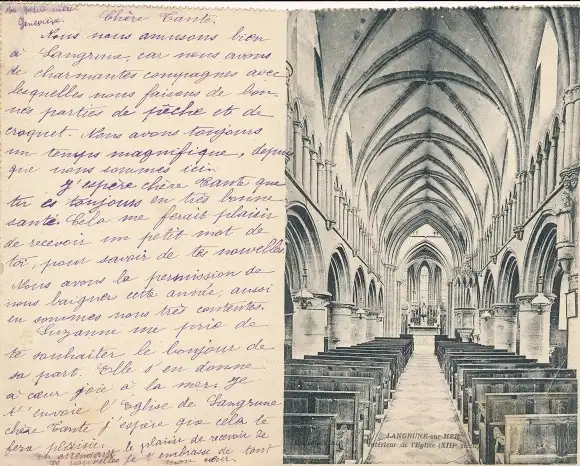 ta petite nièce
Geneviève.
Chère Tante.
Nous nous amusons bien
à Langrune, car nous avons
de charmantes compagnes avec
lesquelles nous faisons de bon-
nes parties de pêche et de
croquet. Nous avons toujours
un temps magnifique, depuis
que nous sommes ici.
J'espère chère Tante que
tu es toujours en très bonne
santé. Cela me ferait plaisir
de recevoir un petit mot de
toi, pour savoir de tes nouvelles
Nous avons la permission de
nous baigner cette année, aussi
en sommes nous très contentes.
Suzanne me prie de
te souhaiter le bonjour de
sa part. Elle s'en donne
à cœur joie à la mer. Je
t'envoie l'Eglise de Langrune
chère Tante j'espère que cela te
fera plaisir.
en attendant le plaisir de recevoir de
tes nouvelles je t'embrasse de tout
mon cœur.
LANGRUNE-sur-MER
Intérieur de l'Eglise (XIIIe Siècle)